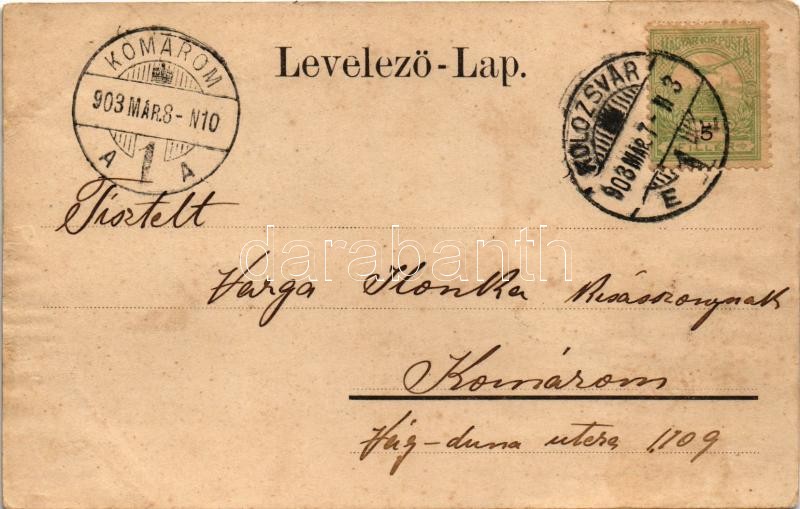 Levelező-Lap.
KOMÁROM
903 MÁR.8 - N10
A 1 A
MAGYAR KIR. POSTA
5
FILLÉR
KOLOZSVÁR
903 MÁR.7 - N 3
1
E
Tisztelt
Varga Ilonka kisasszonynak
Komárom
Vág-duna utcza 1109
darabanth